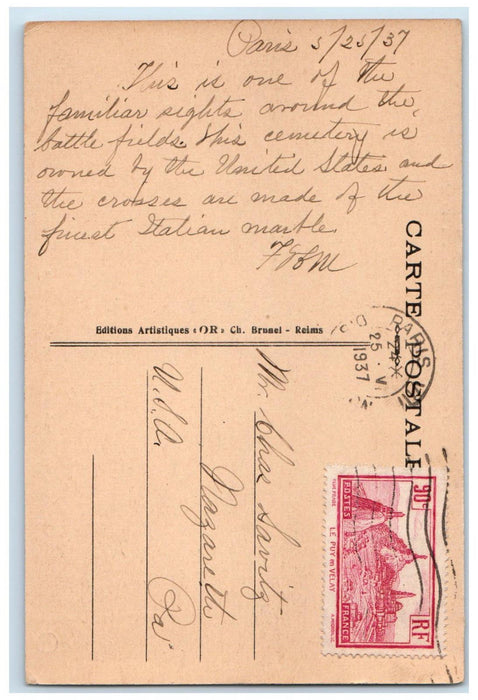 Paris 5/25/37
This is one of the
familiar sights around the
battle fields. This cemetery is
owned by the United States and
the crosses are made of the
finest Italian marble.
Editions Artistiques «OR» Ch. Brunel - Reims
CARTE POSTALE
PARIS
25 VI
1937
Mr. Chas Savitz
Nazareth
Pa
U.S.A.
90c
POSTES
LE PUY EN VELAY
FRANCE
RF